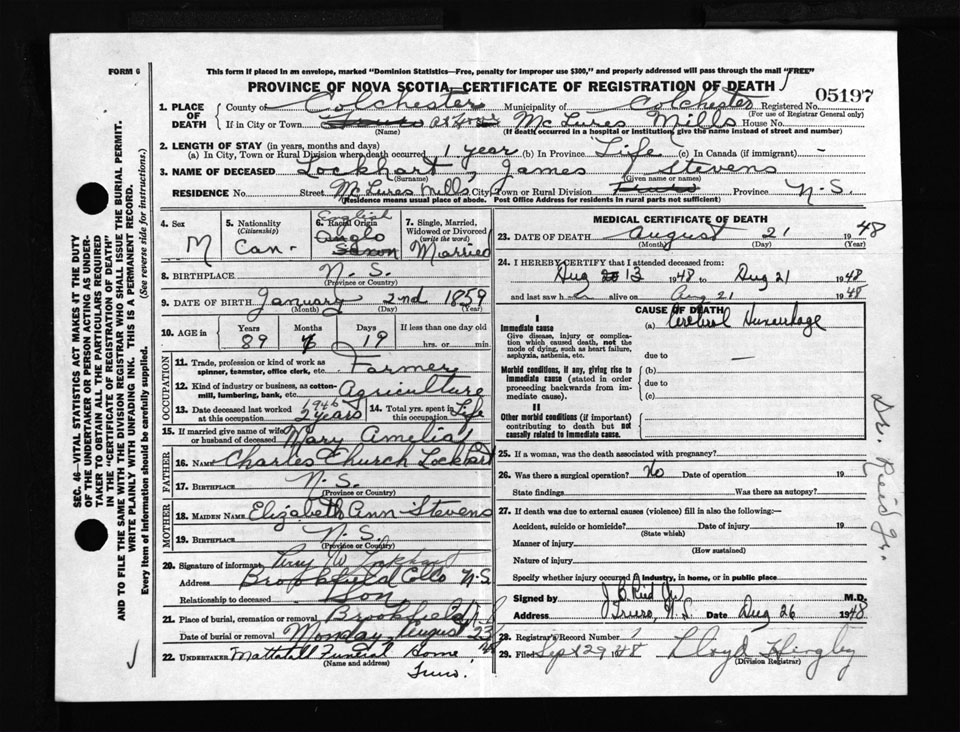 FORM 6
This form if placed in an envelope, marked "Dominion Statistics—Free, penalty for improper use $300," and properly addressed will pass through the mail "FREE"
PROVINCE OF NOVA SCOTIA—CERTIFICATE OF REGISTRATION OF DEATH
05197
1. PLACE OF DEATH
County of Colchester Municipality of Colchester Registered No.
(For use of Registrar General only)
If in City or Town Truro McLures Mills House No.
(Name) (If death occurred in a hospital or institution, give the name instead of street and number)
2. LENGTH OF STAY (in years, months and days)
(a) In City, Town or Rural Division where death occurred 1 year (b) In Province Life (c) In Canada (if immigrant) -
3. NAME OF DECEASED Lockhart, James Stevens
(Surname) (Given name or names)
RESIDENCE No. Street McLures Mills City, Town or Rural Division Truro Province N.S.
(Residence means usual place of abode. Post Office Address for residents in rural parts not sufficient)
4. Sex
M
5. Nationality
(Citizenship)
Can-
6. Racial Origin
English
Anglo
Saxon
7. Single, Married, Widowed or Divorced
(write the word)
Married
8. BIRTHPLACE N.S.
(Province or Country)
9. DATE OF BIRTH January 2nd 1859
(Month) (Day) (Year)
10. AGE in
Years Months Days If less than one day old
89 19 hrs. or min.
OCCUPATION
11. Trade, profession or kind of work as spinner, teamster, office clerk, etc. Farmer
12. Kind of industry or business, as cotton-mill, lumbering, bank, etc. Agriculture
13. Date deceased last worked at this occupation 1946 2 years
14. Total yrs. spent in this occupation Life
15. If married give name of wife or husband of deceased Mary Amelia
FATHER
16. NAME Charles Church Lockhart
17. BIRTHPLACE N.S.
(Province or Country)
MOTHER
18. MAIDEN NAME Elizabeth Ann Stevens
19. BIRTHPLACE N.S.
(Province or Country)
20. Signature of informant W. Lockhart
Address Brookfield Colco N.S.
Relationship to deceased Son
21. Place of burial, cremation or removal Brookfield
Date of burial or removal Monday August 23 48
22. UNDERTAKER Mattatall Funeral Home
(Name and address)
Truro.
MEDICAL CERTIFICATE OF DEATH
23. DATE OF DEATH August 21 1948
(Month) (Day) (Year)
24. I HEREBY CERTIFY that I attended deceased from:
Aug 13 1948 to Aug 21 1948
and last saw h alive on Aug 21 1948
CAUSE OF DEATH
I
Immediate cause (a) Cerebral Hemorrhage
Give disease, injury or complication which caused death, not the mode of dying, such as heart failure, asphyxia, asthenia, etc.
due to —
Morbid conditions, if any, giving rise to immediate cause (stated in order proceeding backwards from immediate cause).
(b)
due to
(c)
II
Other morbid conditions (if important) contributing to death but not causally related to immediate cause.
25. If a woman, was the death associated with pregnancy?
26. Was there a surgical operation? No Date of operation 19
State findings Was there an autopsy?
27. If death was due to external causes (violence) fill in also the following:—
Accident, suicide or homicide? Date of injury 19
(State which)
Manner of injury
(How sustained)
Nature of injury
Specify whether injury occurred in industry, in home, or in public place
Signed by J B Reid Jr M.D.
Address Truro, N.S. Date Aug 26 1948
28. Registrar's Record Number 1
29. Filed Sept 29 1948 Lloyd Hingley
(Division Registrar)
Dr. Reid Jr.
SEC. 46—VITAL STATISTICS ACT MAKES IT THE DUTY
OF THE UNDERTAKER OR PERSON ACTING AS UNDER-
TAKER TO OBTAIN ALL THE PARTICULARS REQUIRED
IN THE "CERTIFICATE OF REGISTRATION OF DEATH"
AND TO FILE THE SAME WITH THE DIVISION REGISTRAR WHO SHALL ISSUE THE BURIAL PERMIT.
WRITE PLAINLY WITH UNFADING INK. THIS IS A PERMANENT RECORD.
Every item of information should be carefully supplied. (See reverse side for instructions.)